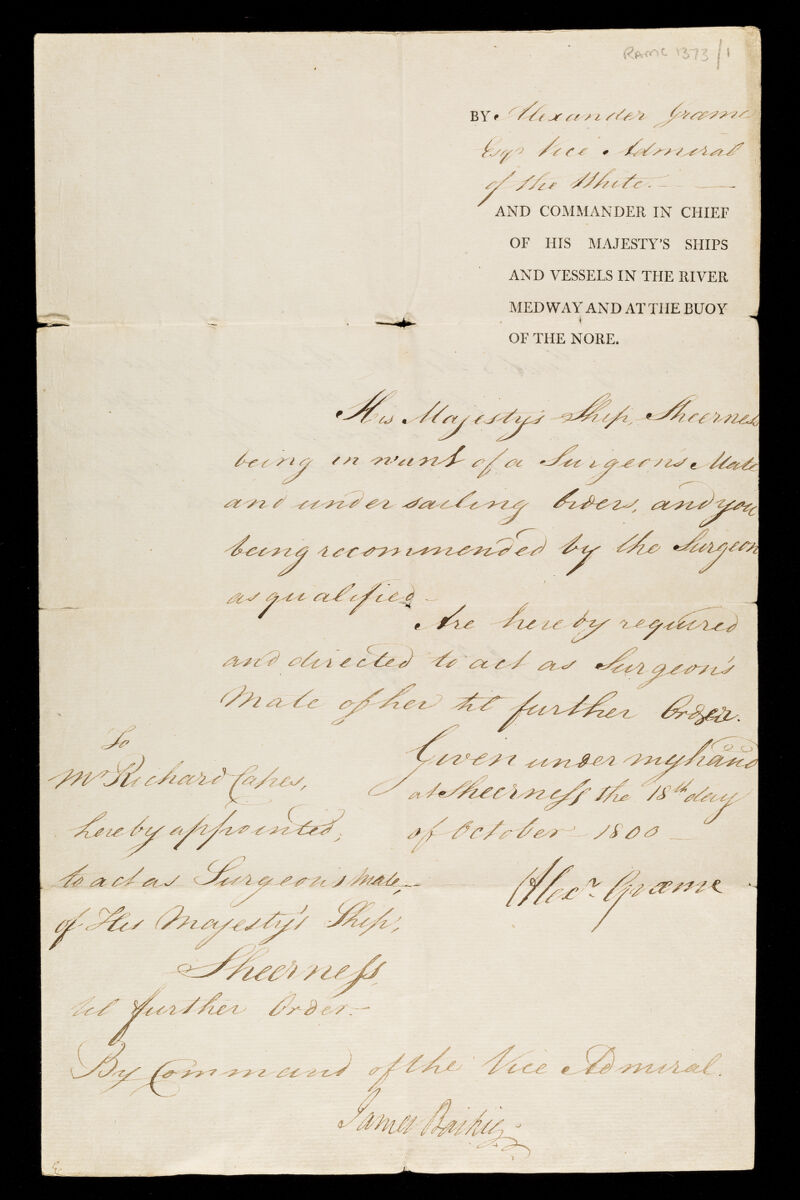 RAMC 1373/1
BY Alexander Græme
Esqr. Vice Admiral
of the White.
AND COMMANDER IN CHIEF
OF HIS MAJESTY'S SHIPS
AND VESSELS IN THE RIVER
MEDWAY AND AT THE BUOY
OF THE NORE.
His Majesty's Ship, Sheerness
being in want of a Surgeon's Mate
and under sailing Orders, and you
being recommended by the Surgeon
as qualified
Are hereby required
and directed to act as Surgeon's
Mate of her til further Order.
Given under my hand
at Sheerness the 18th day
of October 1800
Alexr. Græme
To
Mr Richard Capes,
hereby appointed,
to act as Surgeon's Mate,
of His Majesty's Ship,
Sheerness,
til further Order.
By Command of the Vice Admiral.
James Baikie